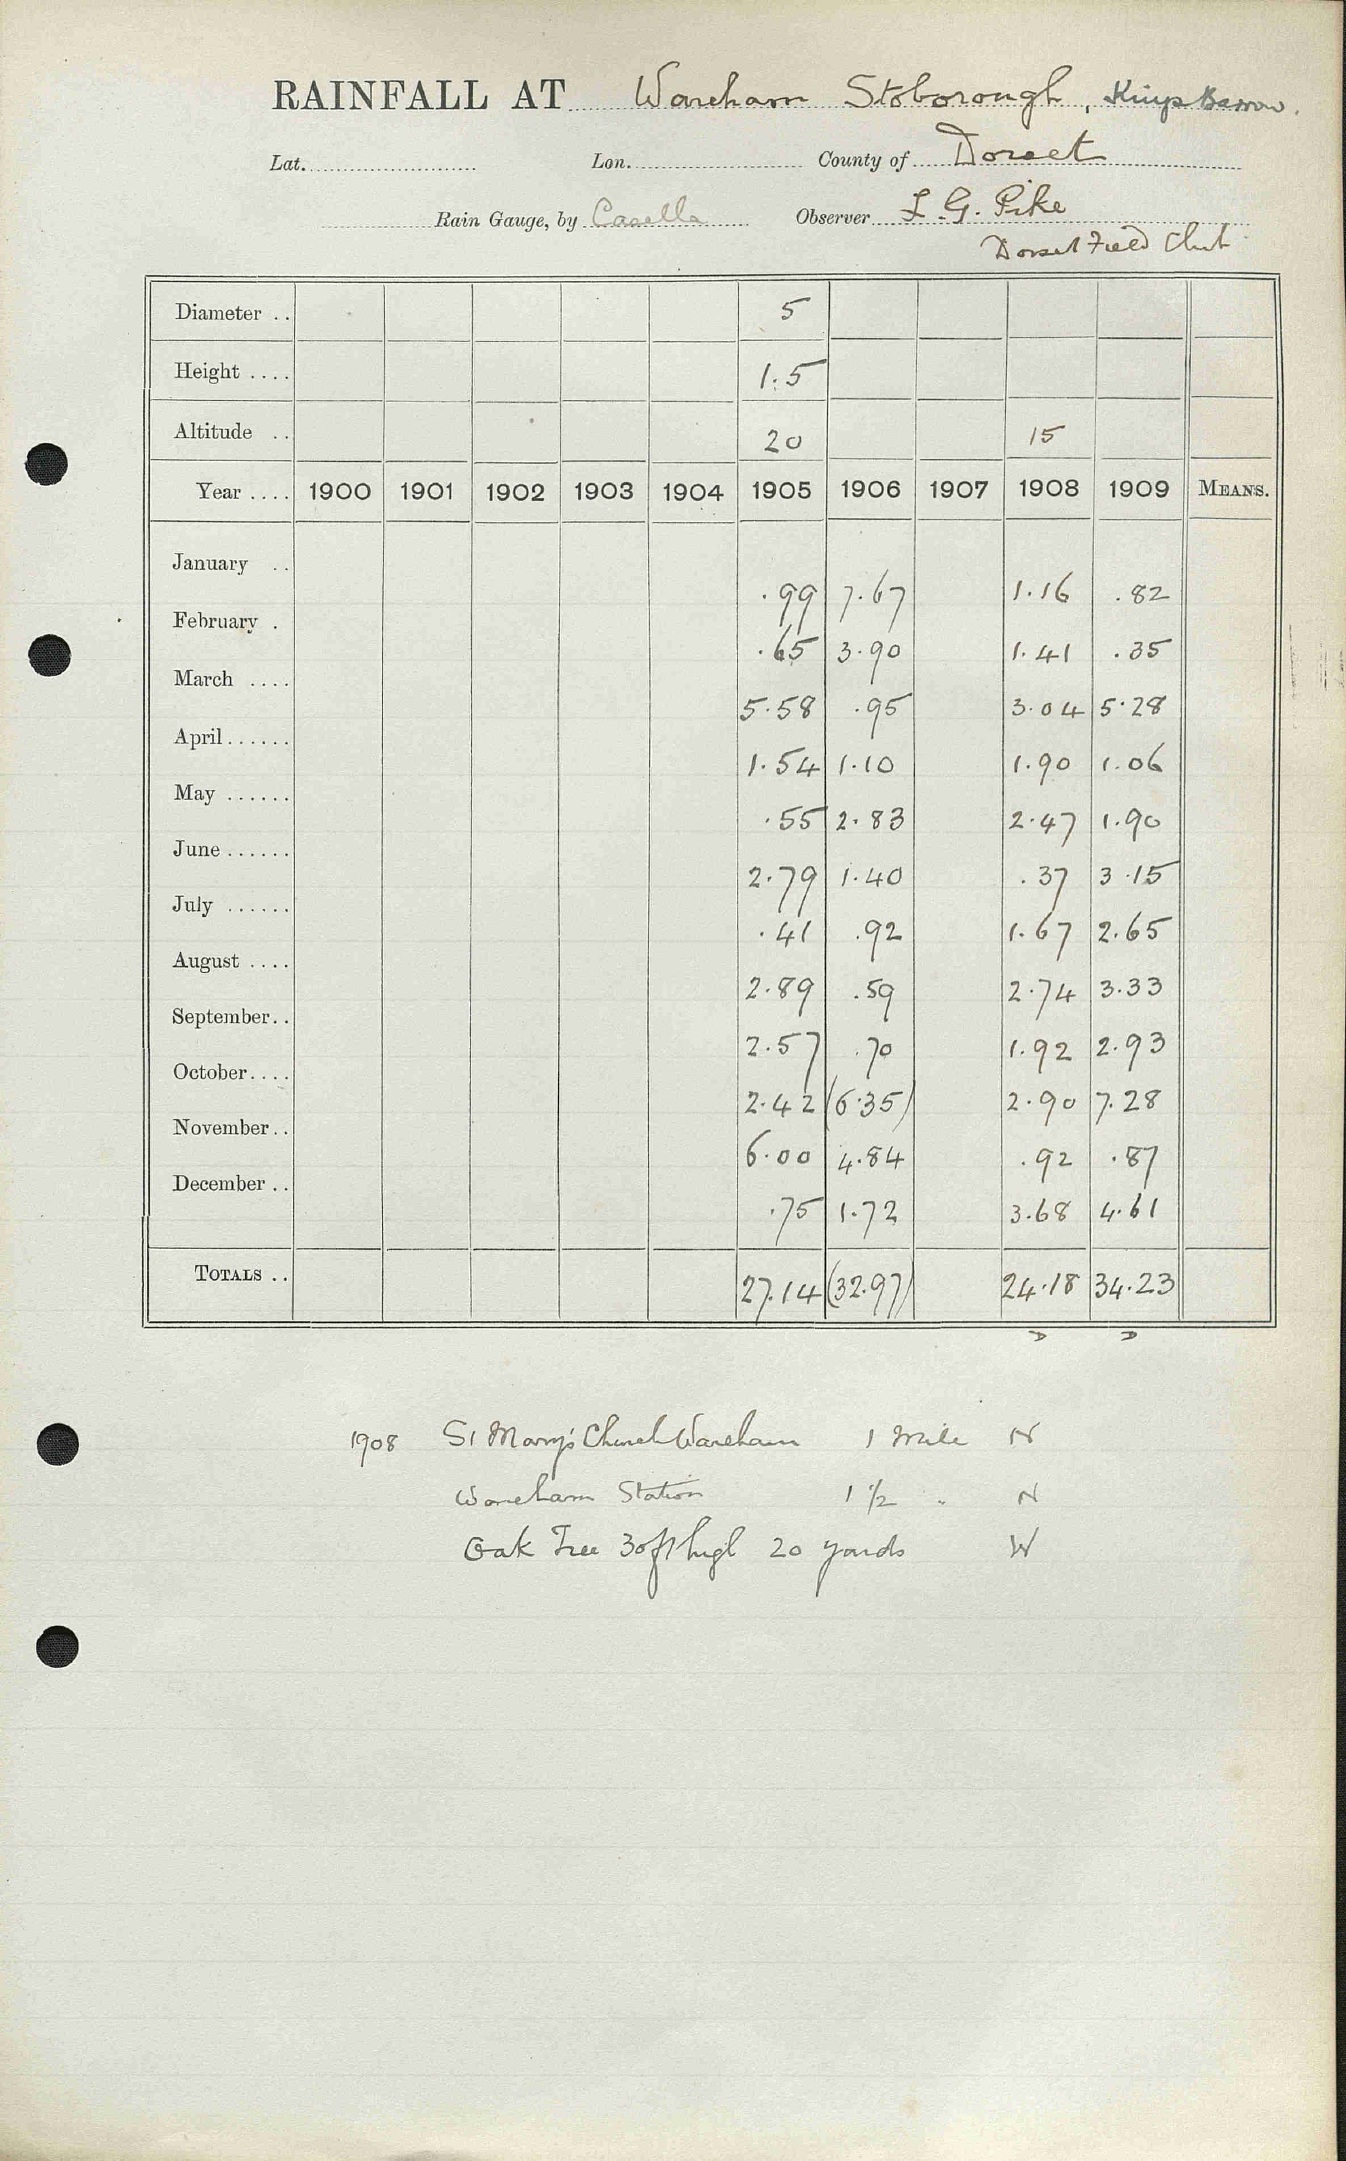 RAINFALL AT Wareham Stoborough, Kings Barrow.
Lat. Lon. County of Dorset
Rain Gauge, by Casella Observer L. G. Pike
Dorset Field Club
Diameter .. 5
Height .... 1.5
Altitude .. 20 15
Year .... 1900 1901 1902 1903 1904 1905 1906 1907 1908 1909 MEANS.
January .. .99 7.67 1.16 .82
February . .65 3.90 1.41 .35
March .... 5.58 .95 3.04 5.28
April...... 1.54 1.10 1.90 1.06
May ...... .55 2.83 2.47 1.90
June ...... 2.79 1.40 .37 3.15
July ...... .41 .92 1.67 2.65
August .... 2.89 .59 2.74 3.33
September.. 2.57 .70 1.92 2.93
October.... 2.42 (6.35) 2.90 7.28
November.. 6.00 4.84 .92 .87
December .. .75 1.72 3.68 4.61
TOTALS .. 27.14 (32.97) 24.18 34.23
D D
1908 St Mary's Church Wareham 1 Mile N
Wareham Station 1 1/2 " N
Oak Tree 30ft high 20 yards W